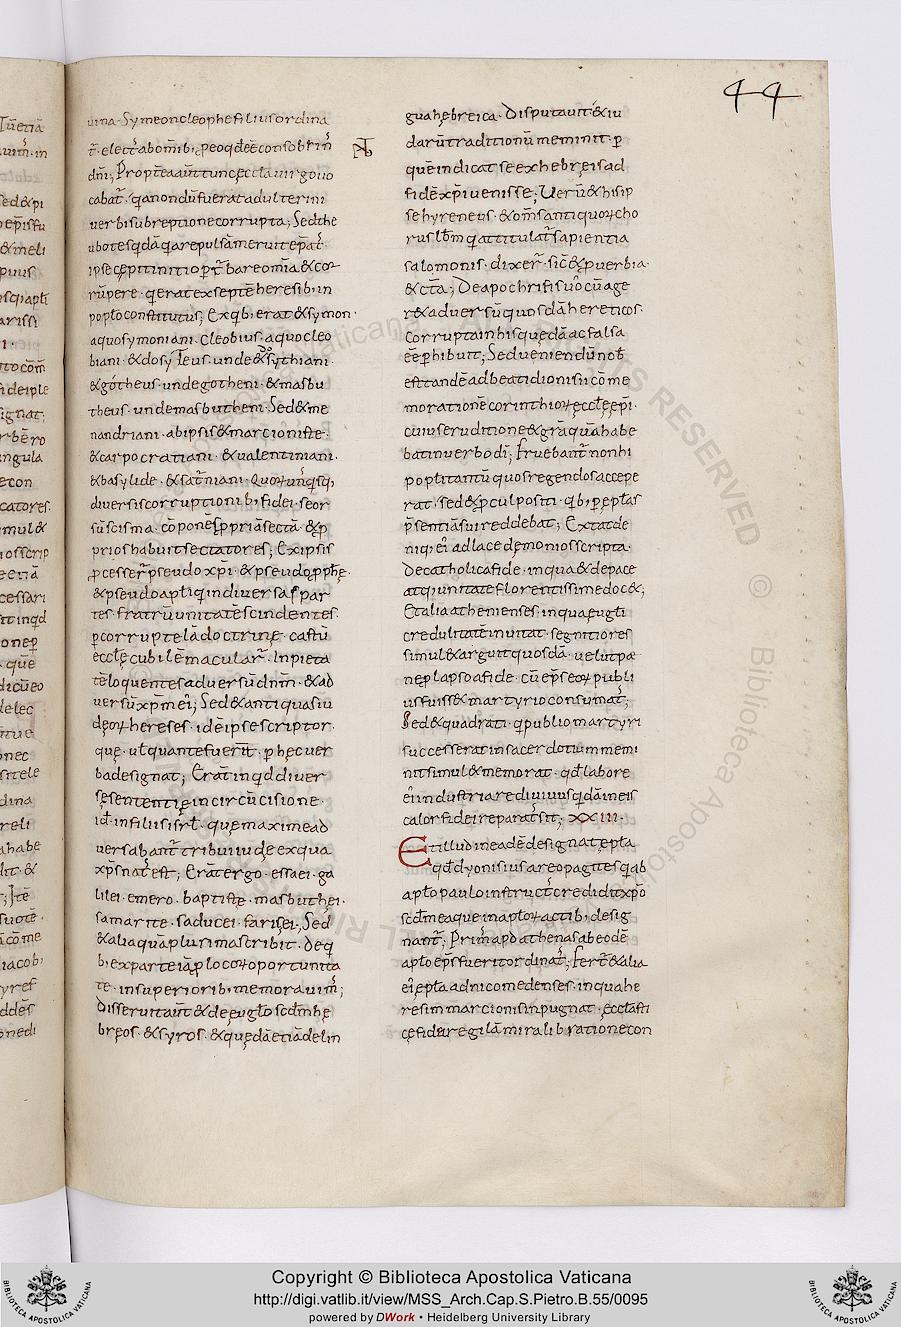 44
uina. Symeon cleophe filius ordina
t̄. elect̄ ab om̄ib; p eo qd ēē consobrin̄
dn̄i; Propt̄ea aūt tunc eccl̄a uirgo uo
cabat̄. qa nondū fuerat adulterini
uerbi subreptione corrupta; Sed the
ubotes qdā qa repulsā meruit ep̄at.
ipse cępit initio pt̄bare om̄ia & cor
rūpere. q erat ex septē heresib; in
poplo constitutus; Ex qb; erat & symon.
a quo symoniani. cleobius. a quo cleo
biani. & dosytheus. unde & dosythiani.
& gotheus. unde gotheni. & masbu
theus. unde masbutheni. Sed & me
nandriani. ab ipsis & marcioniste.
& carpocratiani. & ualentiniani.
& basylide. & sat̄niani. Quoꝝ un̄qsq;
diuersis corruptionib; fidei. seor
sū scisma. cōponens ppriā sectā. & p
prios habuit sectatores; Ex ipsis
pcesser̄ pseudo xp̄i. & pseudo pphę.
& pseudo apl̄i. qi in diuersas par
tes. fratrū unitatē scindentes.
p corruptelā doctrinę. castū
eccl̄ę cubilē macular̄. In pieta
tē loquentes aduersū dn̄m. & ad
uersū xp̄m ei; Sed & antiquas iu
dęoꝝ hereses. idē ipse scriptor.
quę. ul̄ quante fuerīt. p hęc uer
ba designat; Erāt inqd diuer
sę sententię in circūcisione.
id. in filiis isrl̄. quę maxime ad
uersabant̄ tribui iudę ex qua
xp̄s nat̄ est; Erāt ergo. essaei. ga
lilei. emero. baptistę. masbuthei.
samarite. saducei. farisei. Sed
& alia quā plurima scribit. de q
b; ex parte iā p locoꝝ oportunita
te. in superiorib; memorauim̄;
Disseruit aūt & de eugl̄o scdm̄ he
breos. & syros. & quędā etiā de lin
gua hebreica. Disputauit & iu
darū traditionū meminit. p
quē indicat se ex hebreis ad
fidē xp̄i uenisse; Uerū & hic ip
se hyreneus. & om̄s antiquoꝝ cho
rus lbm̄ q attitulat̄ sapientia
salomonis. dixer̄. sic̄ & puerbia.
& ct̄a; De apochrifis uo cū age
r& aduersū quosdā hereticos.
corrupta in his quędā ac falsa
eē phibuit; Sed ueniendū nob
est tandē ad beati dionisii cōme
morationē corinthioꝝ eccl̄ę ep̄i.
cuius eruditione & gr̄a quā habe
bat in uerbo dī; fruebant̄ non hi
popli tantū quos regendos accepe
rat. sed & pcul positi. qb; p epl̄as
p̄sentiā sui reddebat; Extat de
niq; ei ad lacedemonios scripta.
De catholica fide. in qua & de pace
atq; unitate florentissime doc&;
Et alia athenienses. in qua eugl̄i
credulitatē inuitat. segnitiores
simul & arguit quosdā. uelut pæ
ne plapso a fide. cū ep̄s eoꝝ publi
us fuiss& martyrio consumat̄;
Sed & quadrati. q publio martyri
successerat in sacerdotium memi
nit simul & memorat. qd labore
ei industria rediuiuus qdā in eis
calor fidei reparat̄ sit; XXIII.
Et illud in eadē designat epl̄a
qd dyonisius areopagites q ab
aplo paulo instruct̄ credidit xp̄o
scdm̄ ea que in aploꝝ actib; desig
nant̄; Prim̄ apd athenas ab eodē
aplo ep̄s fuerit ordinat̄; Fert̄ & alia
ei epl̄a ad nicomedenses. in qua he
resim marcionis inpugnat. eccl̄asti
cę fidei regulā mirabili ratione con
Copyright © Biblioteca Apostolica Vaticana
http://digi.vatlib.it/view/MSS_Arch.Cap.S.Pietro.B.55/0095
powered by DWork • Heidelberg University Library